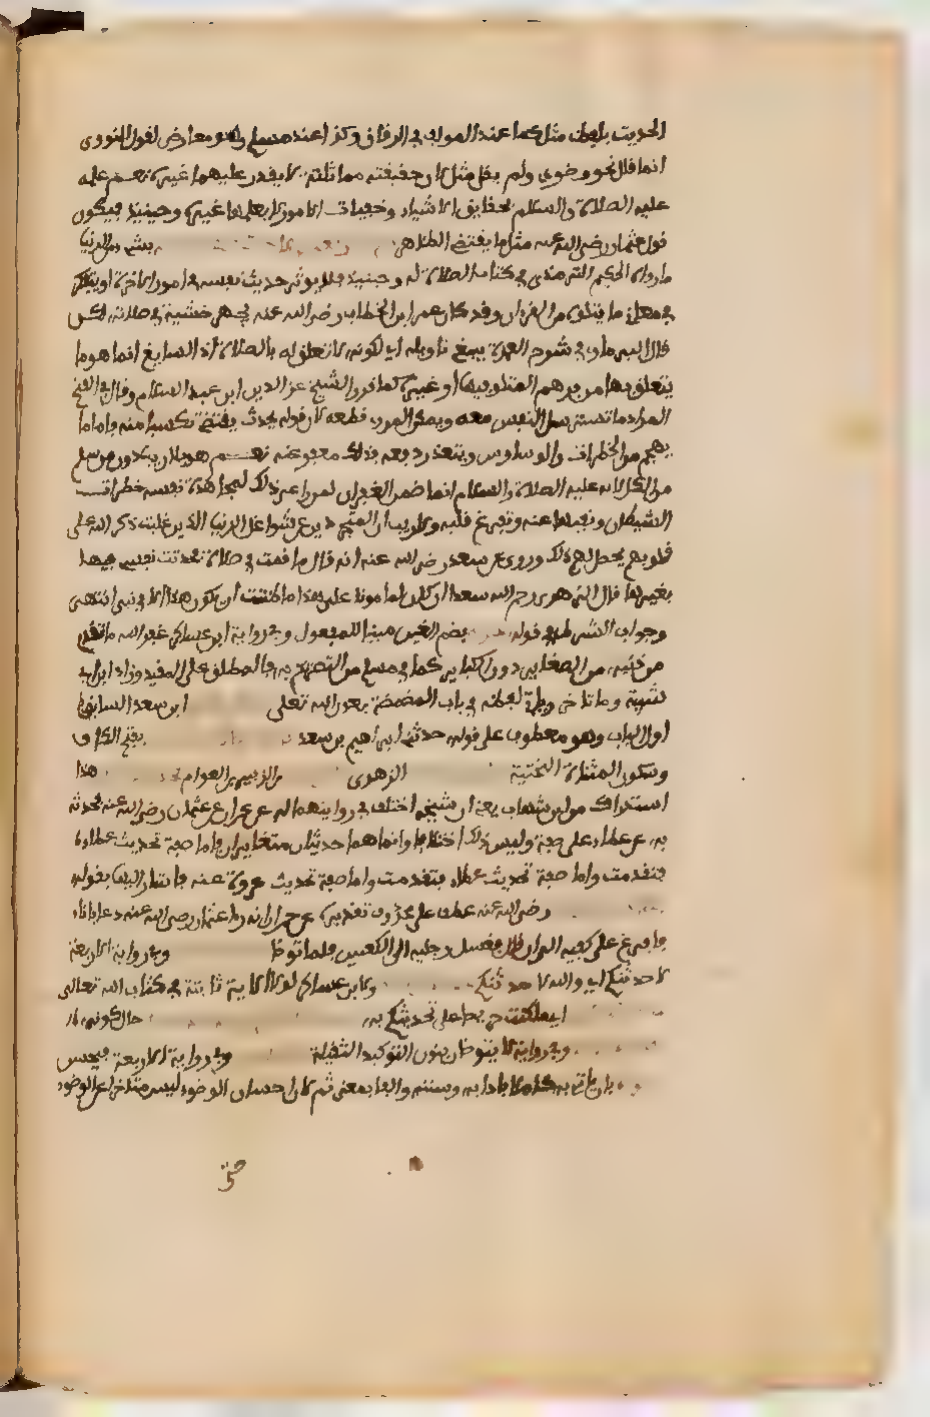 الحديث بلفظ مثل كما عند المولف في الرقاق وكذا عند مسلم وهو معارض لقول النووي
انما قال نحو وضوي ولم يقل مثل لان حقيقته مماثلته لا يقدر عليها غيره نعم علمه
عليه الصلاة والسلام بحقايق الاشياء وخفيات الامور لا يعلمها غيره وحينيذ فيكون
قول عثمان رضي الله عنه مثل ما يقتضي الظاهر بشيء من الدنيا
ما رواه الحكيم الترمذي في كتاب الصلاة له وحينيذ فلا يوثر حديث نفسه في امور الاخرة او يتفكر
في معاني ما يتلوه من القران وقد كان عمر ابن الخطاب رضي الله عنه يجهز جيشه في صلاته لكن
قال البرماوي في شرح العمدة ينبغي تاويله اي لكونه لا تعلق له بالصلاة اذ السايغ انما هو ما
يتعلق بها من فهم المتلو فيها او غيره كما قرره الشيخ عز الدين ابن عبد السلام وقال في الفتح
المراد ما تسترسل النفس معه ويمكن المرء قطعه لان قوله يحدث يقتضي تكسبا منه فاما ما
يهجم من الخطرات والوساوس ويتعذر دفعه فذلك معفو عنه نعم هو بلا ريب دون من سلم
من الكل لانه عليه الصلاة والسلام انما ضمن الغفران لمن راعى ذلك لمجاهدة نفسه خطرات
الشيطان ونفيها عنه وتفرغ قلبه ولا ريب ان المتجردين عن شواغل الدنيا الذين غلب ذكر الله على
قلوبهم يحصل لهم ذلك وروي عن سعد رضي الله عنه انه قال ما قمت في صلاة فحدثت نفسي فيها
بغيرها قال الزهري رحم الله سعدا ان كان لمامونا على هذا ما ظننت ان يكون هذا الا في نبي انتهى
وجواب الشرط في قوله بضم الغين مبنيا للمفعول وفي رواية ابن عساكر غفر الله ما تقدم
من ذنبه من الصغاير دون الكباير كما في مسلم من التصريح به فالمطلق على المقيد وزاد ابن ابي
شيبة وما تاخر وياتي لفظه في باب المضمضة بعون الله تعلى ابن سعد السابق
اول الباب وهو معطوف على قوله حدثني ابراهيم بن سعد بفتح الكاف
وسكون المثناة التحتية الزهري بن الزبير بن العوام هذا
استدراك من ابن شهاب يعني ان شيخيه اختلفا في روايتهما له عن حمران عن عثمان رضي الله عنه فحدثه
به عن عطاء على صفة وليس ذلك اختلافا وانما هما حديثان متغايران فاما صفة تحديث عطاء
فتقدمت واما صفة تحديث عروة عنه فاشار اليها بقوله
رضي الله عنه عطف على محذوف تقديره عن حمران انه راى عثمان رضي الله عنه دعا باناء
فافرغ على كفيه الى ان قال فغسل رجليه الى الكعبين فلما توضا وفي رواية الاربعة
لاحدثنكم اي والله لاحدثنكم ولابن عساكر لولا اية ثابتة في كتاب الله تعالى
اي ما كنت حريصا على تحديثكم به حال كونه
وفي رواية لا يتوضان بنون التوكيد الثقيلة وفي رواية الاربعة فيحسن
بان ياتي به كاملا بادابه وسننه والفا بمعنى ثم لان احسان الوضوء ليس متاخرا عن الوضوء
حتى